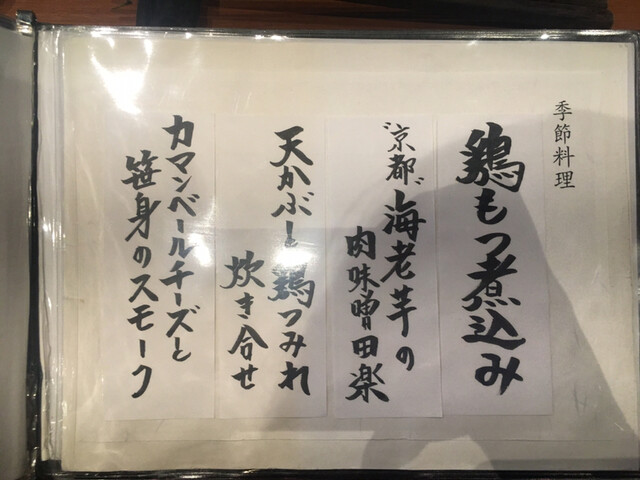 季節料理
鶏もつ煮込み
"京都"海老芋の
肉味噌田楽
天かぶと鶏つみれ
炊き合せ
カマンベールチーズと
笹身のスモーク